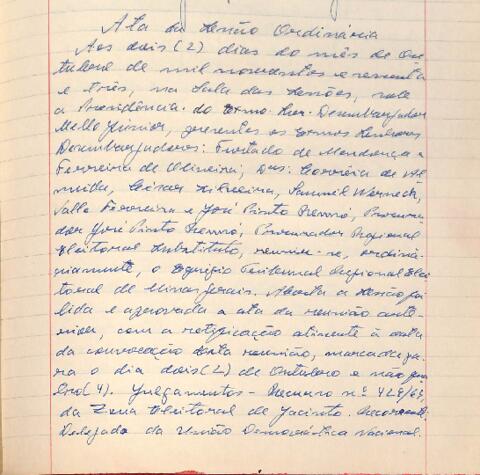 Ata da Sessão Ordinária
Aos dois (2) dias do mês de Ou-
tubro de mil novecentos e sessenta
e três, na Sala das Sessões, sob
a Presidência do Exmo. Snr. Desembargador
Mello Júnior, presentes os Exmos Senhores
Desembargadores: Furtado de Mendonça e
Ferreira de Oliveira, Drs: Corrêia de Al-
meida, César Silveira, Samuel Werneck,
Valle Ferreira e José Pinto Renó, Procura-
dor José Pinto Renó, Procurador Regional
Eleitoral Substituto, reuniu-se, ordina-
riamente, o Egrégio Tribunal Regional Elei-
toral de Minas Gerais. Aberta a Sessão foi
lida e aprovada a ata da reunião ante-
rior, com a retificação atinente à data
da convocação desta reunião, marcada pa-
ra o dia dois (2) de Outubro e não
(4). Julgamentos - Recurso nº 428/63,
da Zona Eleitoral de Jacinto. Recorrente:
Delegado da União Democrática Nacional.